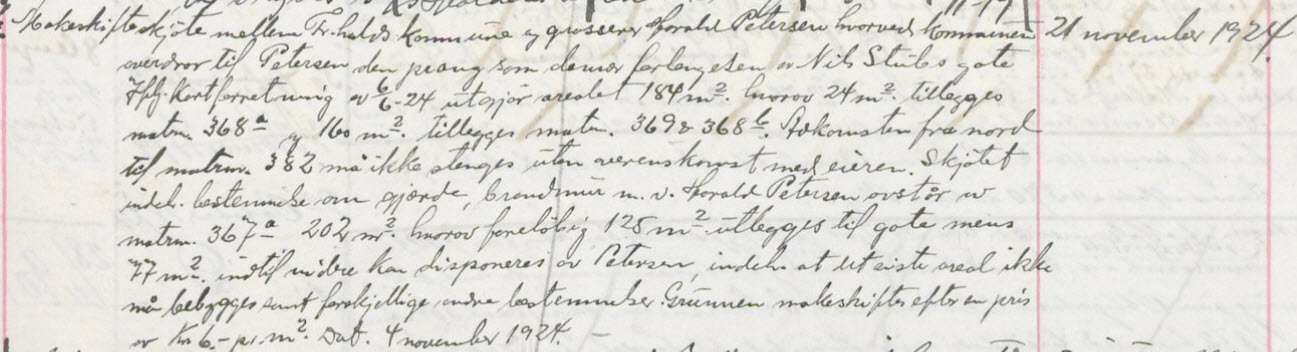 Makeskifteskjøte mellem Fr.halds kommune og grosserer Harald Petersen hvorved kommunen 21 november 1924.
overdrar til Petersen den av Nils Stubs gate
Iflg. kortforretning av 6/6-24 utgjør arealet 184 m². hvorav 24 m². tillegges
matrn. 368ᵃ og 160 m². tillegges matrn. 369 & 368ᵇ. Adkomsten fra nord
til matrnr. 382 må ikke stenges uten overenskomst med eieren. Skjøtet
indeh. bestemmelse om gjærde, brandmur m. v. Harald Petersen avstår av
matrn. 367ᵃ 202 m². hvorav foreløbig 125 m². utlegges til gate mens
77 m². indtil videre kan disponeres av Petersen, indeh. at det siste areal ikke
må bebygges samt forskjellige andre bestemmelser. Grunnen makeskiftes efter en pris
av kr 6.- pr. m². Dat. 4 november 1924. –